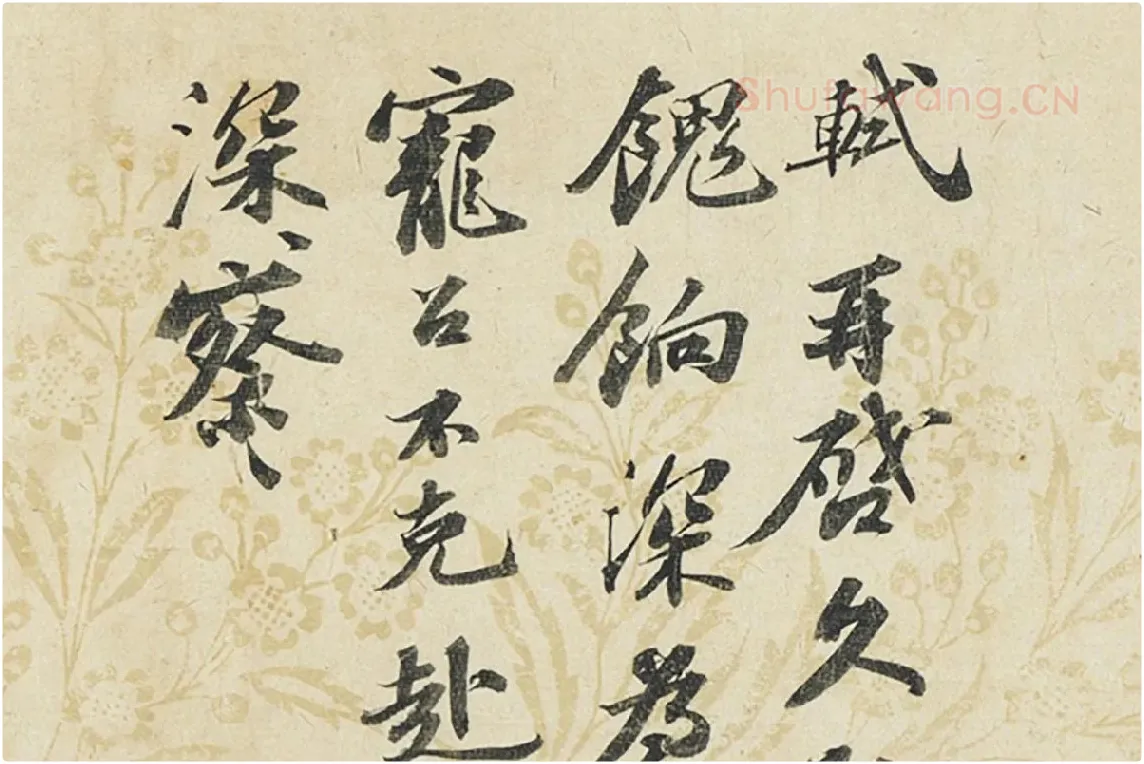 軾再啓久
餽餉深為
寵召不克赴
深察
Shufawang.CN